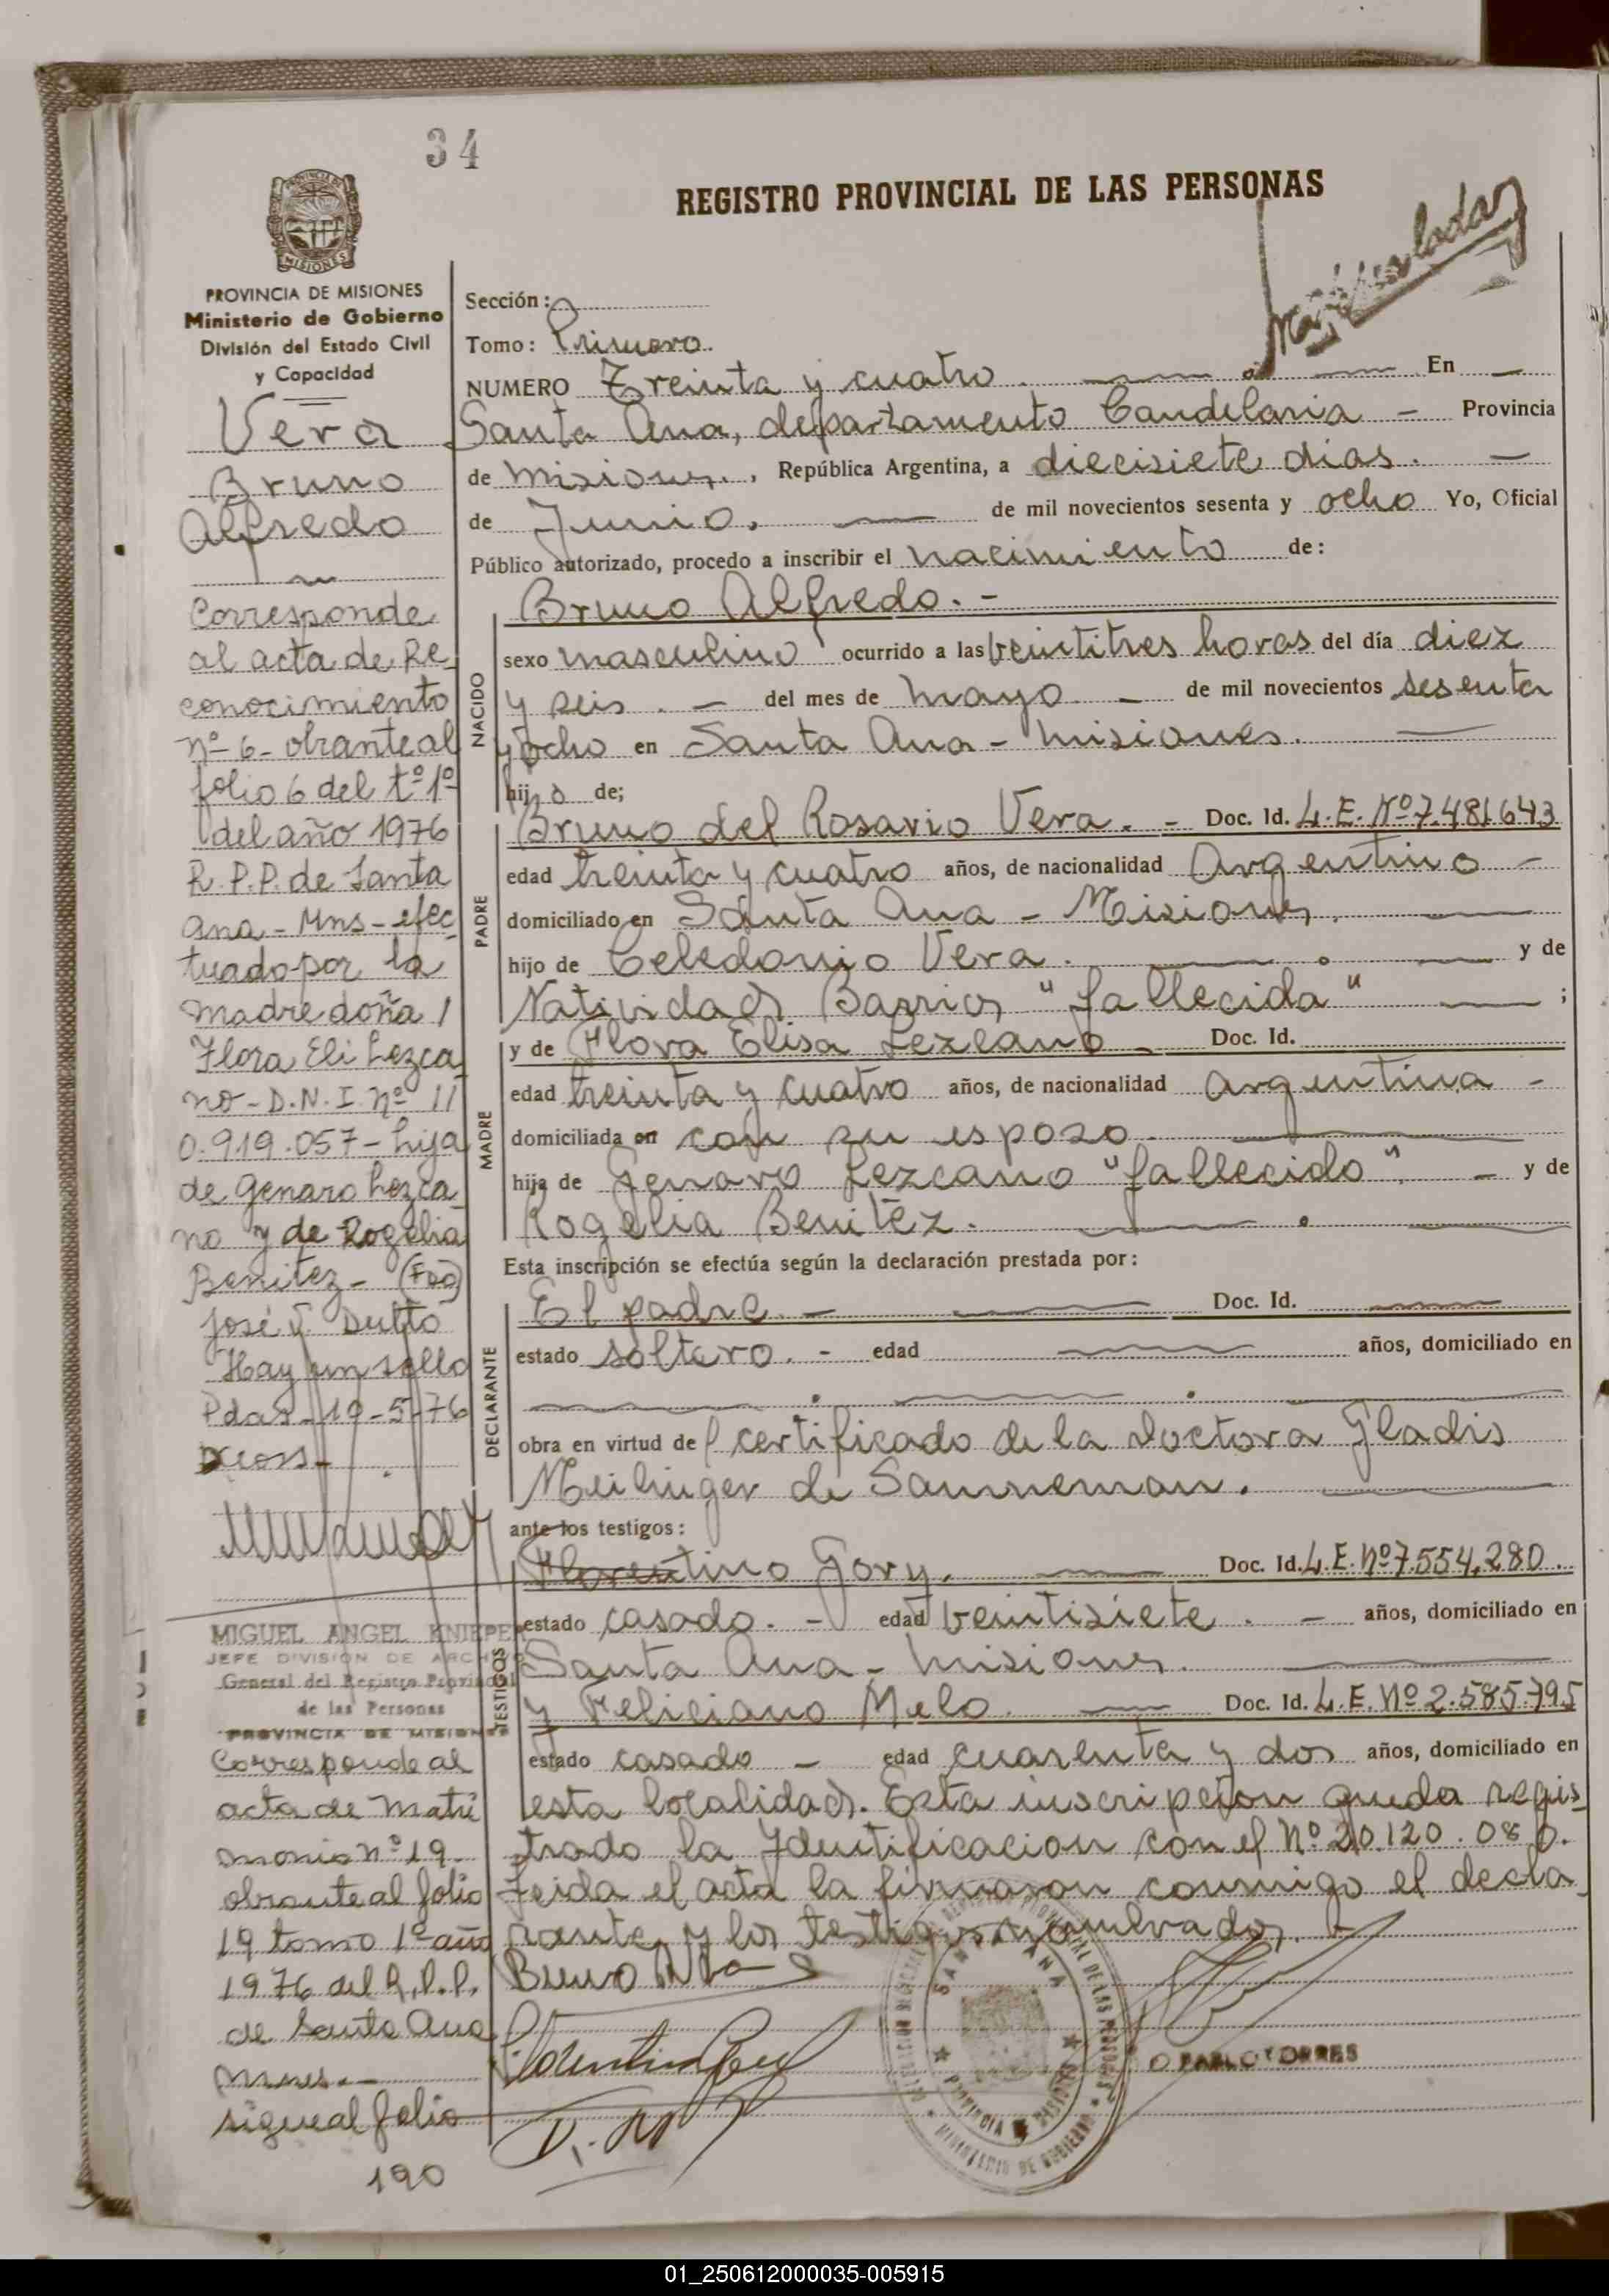 34
REGISTRO PROVINCIAL DE LAS PERSONAS
PROVINCIA DE MISIONES
Ministerio de Gobierno
División del Estado Civil
y Capacidad
Vera
Bruno
Alfredo
Corresponde
al acta de Re
conocimiento
nº 6 - obrante al
folio 6 del tº 1º
del año 1976
R.P.P. de Santa
Ana - Mns - efec
tuado por la
madre doña /
Flora Eli Lezca
no - D.N.I. nº //
0.919.057 - hija
de Genaro Lezca
no y de Rogelia
Benitez - (Fdo)
José Dutto
Hay un sello
Pdas - 19-5-76
MIGUEL ANGEL KNIEPER
JEFE DIVISION DE ARCHIVO
General del Registro Provincial
de las Personas
PROVINCIA DE MISIONES
Corresponde al
acta de matri
monio nº 19
obrante al folio
19 tomo 1º año
1976 del R.P.P.
de Santa Ana
Mnes.-
sigue al folio
190
Sección:
Tomo: Primero.
NUMERO Treinta y cuatro. En
Santa Ana, departamento Candelaria - Provincia
de Misiones., República Argentina, a diecisiete dias.
de Junio. de mil novecientos sesenta y ocho Yo, Oficial
Público autorizado, procedo a inscribir el nacimiento de:
Bruno Alfredo.-
NACIDO
sexo masculino ocurrido a las veintitres horas del día diez
y seis. - del mes de mayo - de mil novecientos sesenta
y ocho en Santa Ana - Misiones.
hijo de;
PADRE
Bruno del Rosario Vera. - Doc. Id. L.E. Nº 7.481.643
edad treinta y cuatro años, de nacionalidad Argentino -
domiciliado en Santa Ana - Misiones.
hijo de Celedonio Vera. y de
Natividad Barrios "fallecida" ;
MADRE
y de Flora Elisa Lezcano - Doc. Id.
edad treinta y cuatro años, de nacionalidad argentina -
domiciliada en con su esposo.
hija de Genaro Lezcano "fallecido". - y de
Rogelia Benitez.
Esta inscripción se efectúa según la declaración prestada por:
DECLARANTE
El padre. - Doc. Id.
estado soltero. - edad años, domiciliado en
obra en virtud del certificado de la doctora Gladis
Meilinger de Sanneman.
ante los testigos:
TESTIGOS
Florentino Gory. Doc. Id. L.E. Nº 7.554.280
estado casado. - edad veintisiete. - años, domiciliado en
Santa Ana - Misiones.
y Feliciano Melo. Doc. Id. L.E. Nº 2.585.795
estado casado - edad cuarenta y dos años, domiciliado en
esta localidad. Esta inscripcion queda regis
trado la Identificacion con el Nº 20.120.080.
Leida el acta la firmaron conmigo el decla
rante y los testigos nombrados.
SANTA ANA
PROVINCIA DE MISIONES
MINISTERIO DE GOBIERNO
PABLO TORRES
01_250612000035-005915